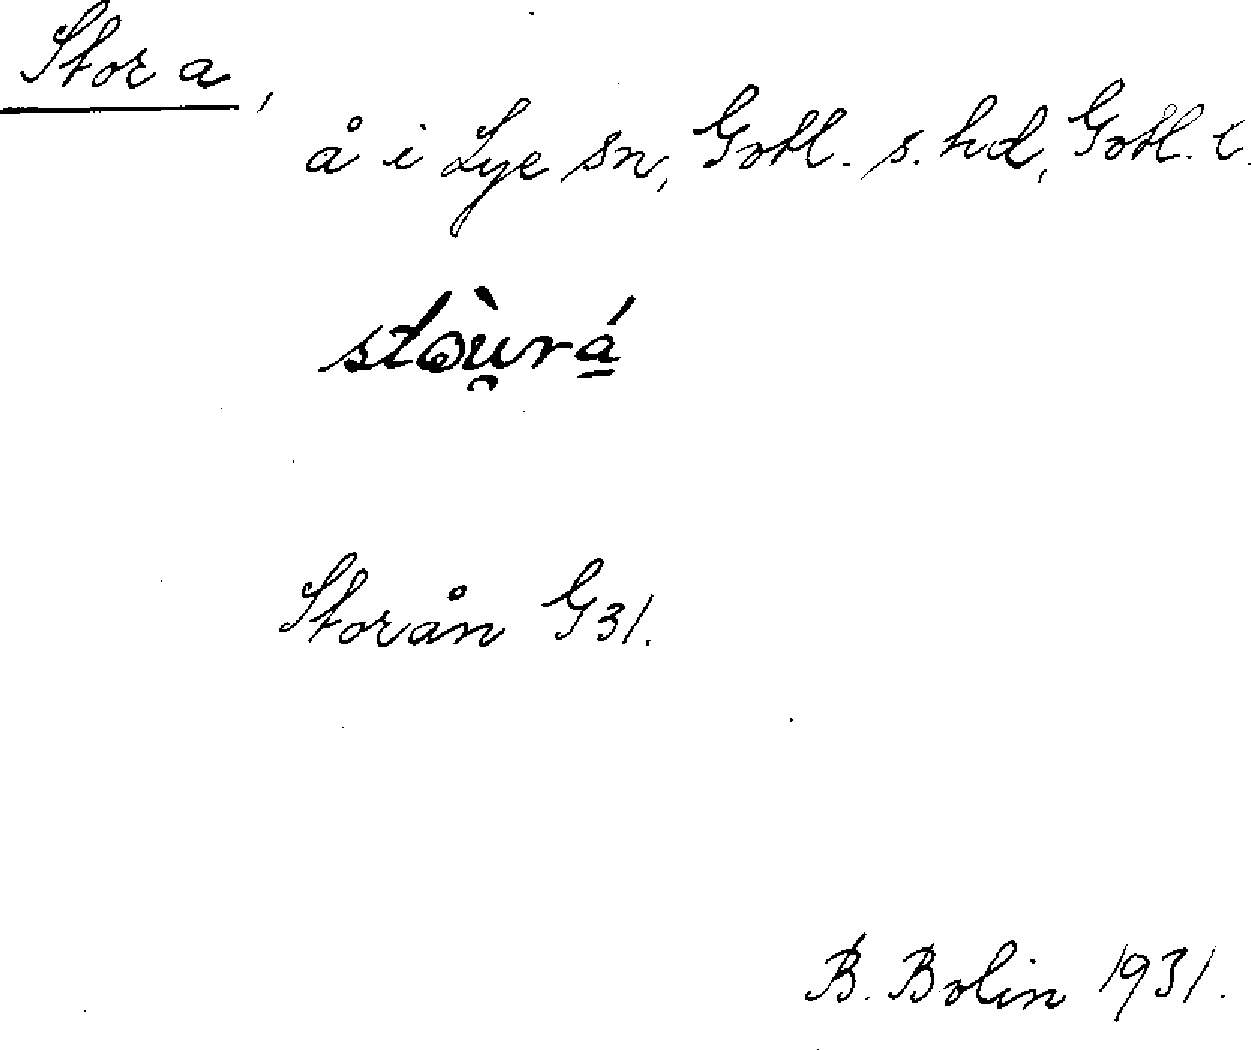 Stor a,
å i Lye sn, Gotl. s. hd, Gotl. l.
stəù̯rá̠
Storån G31.
B. Bolin 1931.